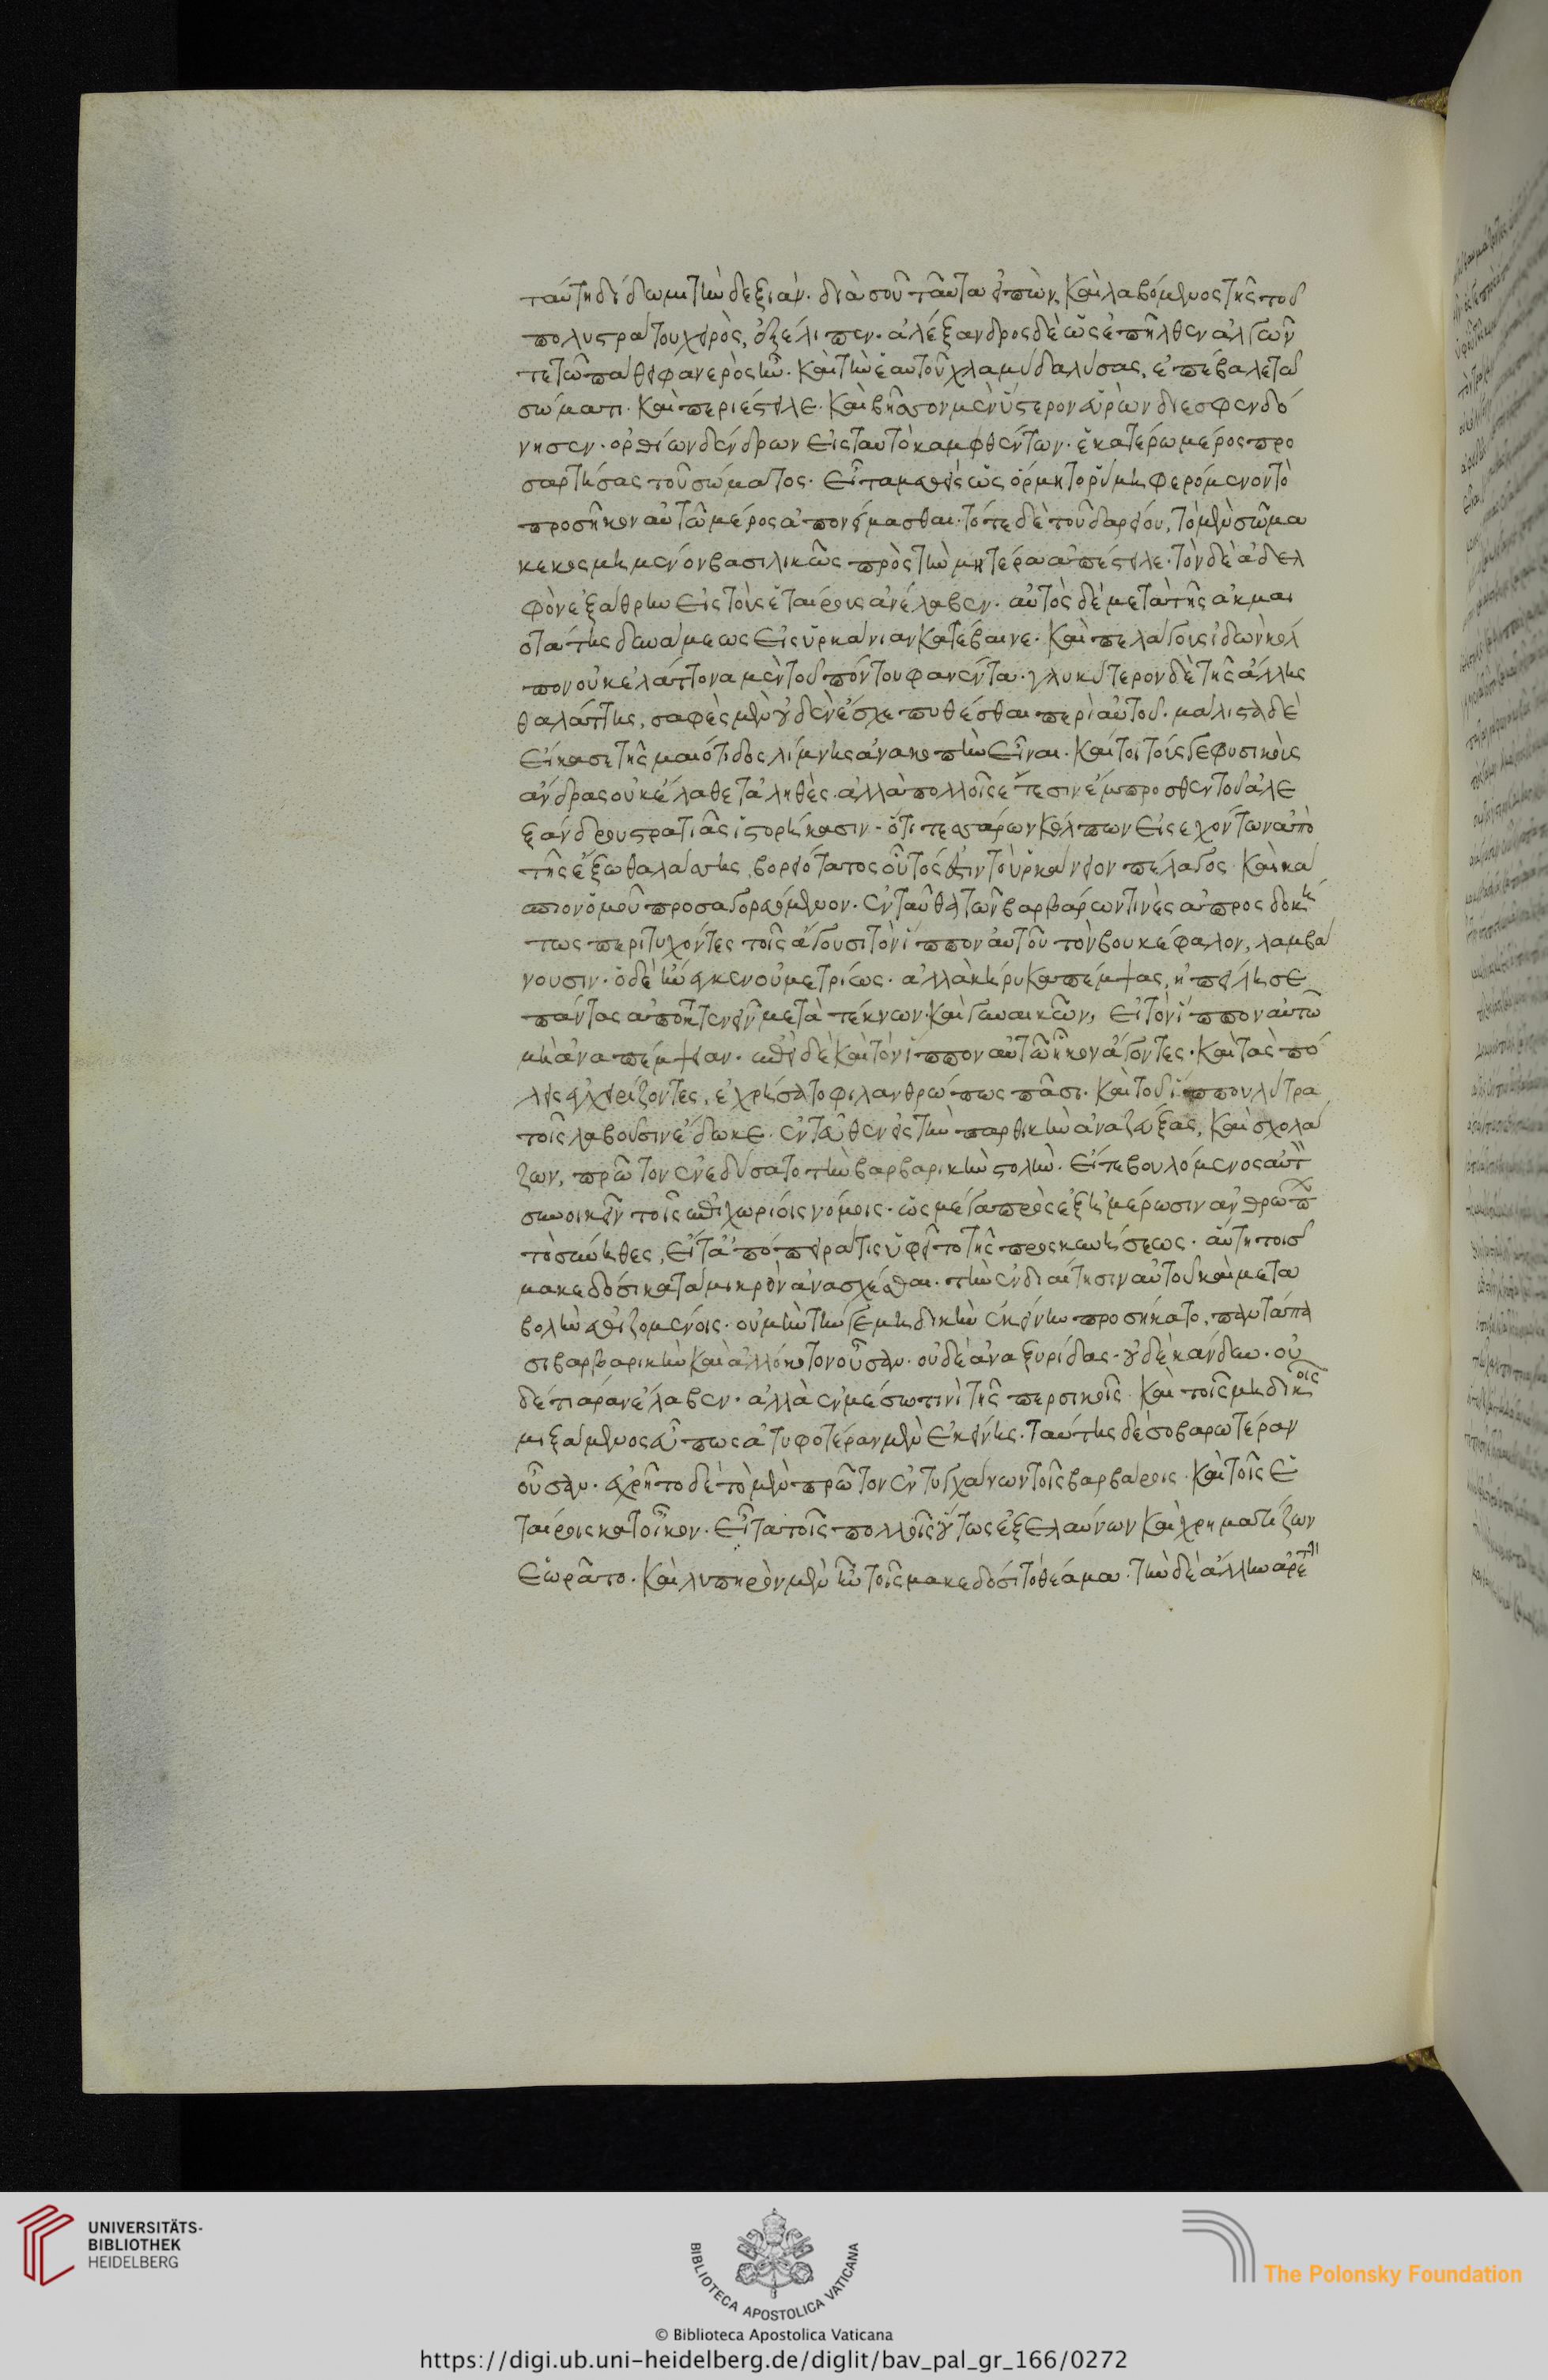 ταύτη δίδωμι τὴν δεξιὰν. διὰ σοῦ ταῦτα εἰπὼν, καὶ λαβόμενος τῆς τοῦ
πολυστράτου χειρὸς, ἐξέλιπεν. ἀλέξανδρος δὲ ὡς ἐπῆλθεν ἀλγῶν
τε τῶ πάθει φανερὸς ἦν. καὶ τὴν ἑαυτοῦ χλαμύδα λύσας, ἐπέβαλε τῶ
σώματι. καὶ περιέστειλε. καὶ βῆσσον μὲν ὕστερον εὑρὼν διεσφενδό
νησεν. ὀρθίων δένδρων εἰς ταυτὸ καμφθέντων. ἑκατέρω μέρος προ
σαρτήσας τοῦ σώματος. εἶτα μεθεὶς ὡς ὥρμητο ῥύμη φερόμενον τὸ
προσῆκον αὐτῶ μέρος ἀπονείμασθαι. τότε δὲ τοῦ δαρείου, τὸ μὲν σῶμα
κεκοσμημένον βασιλικῶς πρὸς τὴν μητέρα ἀπέστειλε. τὸν δὲ ἀδελ
φὸν ἐξάθρην εἰς τοὺς ἑταίρους ἀνέλαβεν. αὐτὸς δὲ μετὰ τῆς ἀκμαι
οτάτης δυνάμεως εἰς ὑρκανίαν κατέβαινε. καὶ πελάγους ἰδὼν κόλ
πον οὐκ ἐλάττονα μὲν τοῦ πόντου φανέντα. γλυκύτερον δὲ τῆς ἄλλης
θαλάττης, σαφὲς μὲν οὐδὲν ἔσχε πυθέσθαι περὶ αὐτοῦ. μάλιστα δὲ
εἴκασε τῆς μαιώτιδος λίμνης ἀνακοπὴν εἶναι. καίτοι τούς γε φυσικοὺς
ἄνδρας οὐκ ἔλαθε τἀληθὲς. ἀλλὰ πολλοῖς ἔτεσιν ἔμπροσθεν τοῦ ἀλε
ξάνδρου στρατιᾶς ἱστορήκασιν. ὅτι τεσσάρων κόλπων εἰσεχόντων ἀπὸ
τῆς ἔξω θαλάσσης, βορειότατος οὗτός ἐστιν τὸ ὑρκάνιον πέλαγος καὶ κά
σπιον ὁμοῦ προσαγορευόμενον. ἐνταῦθα τῶν βαρβάρων τινὲς ἀπροσδοκή
τως περιτυχόντες τοῖς ἄγουσι τὸν ἵππον αὐτοῦ τὸν βουκέφαλον, λαμβά
νουσιν. ὁ δὲ ἤνεγκεν οὐ μετρίως. ἀλλὰ κήρυκα πέμψας, ἠπείλησε
πάντας ἀποκτενεῖν μετὰ τέκνων καὶ γυναικῶν, εἰ τὸν ἵππον αὐτῶ
μὴ ἀναπέμψαν. ἐπεὶ δὲ καὶ τὸν ἵππον αὐτῶ ἧκον ἄγοντες. καὶ τὰς πό
λεις ἐγχειρίζοντες, ἐχρήσατο φιλανθρώπως πᾶσι. καὶ τοῦ ἵππου λύτρα
τοῖς λαβοῦσιν ἔδωκε. ἐντεῦθεν εἰς τὴν παρθικὴν ἀναζεύξας, καὶ σχολά
ζων, πρῶτον ἐνεδύσατο τὴν βαρβαρικὴν στολὴν. εἴτε βουλόμενος αὑτὸν
συνοικειοῦν τοῖς ἐπιχωρίοις νόμοις. ὡς μέγα πρὸς ἐξημέρωσιν ἀνθρώπων
τὸ σύνηθες, εἴτ' ἀπόπειρά τις ὑφεῖτο τῆς προσκυνήσεως. αὕτη τοῖς
μακεδόσι κατὰ μικρὸν ἀνασχέσθαι. τὴν ἐνδιαίτησιν αὐτοῦ καὶ μετα
βολὴν ἐθιζομένοις. οὐ μὴν τήν γε μηδικὴν ἐκείνην προσήκατο, παντάπα
σι βαρβαρικὴν καὶ ἀλλόκοτον οὖσαν. οὐδὲ ἀναξυρίδας. οὐδὲ κάνδυν. οὐ
δὲ τιάραν ἔλαβεν. ἀλλὰ ἐν μέσω τινὶ τῆς περσικοῖς καὶ τοῖς μηδικοῖς
μιξάμενος εὖ πως ἀτυφοτέραν μὲν ἐκείνης. ταύτης δὲ σοβαρωτέραν
οὖσαν. ἐχρῆτο δὲ τὸ μὲν πρῶτον ἐντυγχάνων τοῖς βαρβάροις καὶ τοῖς ἑ
ταίροις κατ' οἶκον. εἶτα τοῖς πολλοῖς οὕτως ἐξελαύνων καὶ χρηματίζων
ἑωρᾶτο. καὶ λυπηρὸν μὲν ἦν τοῖς μακεδόσι τὸ θέαμα. τὴν δὲ ἄλλην ἀρετὴν
UNIVERSITÄTS-
BIBLIOTHEK
HEIDELBERG
BIBLIOTECA APOSTOLICA VATICANA
The Polonsky Foundation
© Biblioteca Apostolica Vaticana
https://digi.ub.uni-heidelberg.de/diglit/bav_pal_gr_166/0272